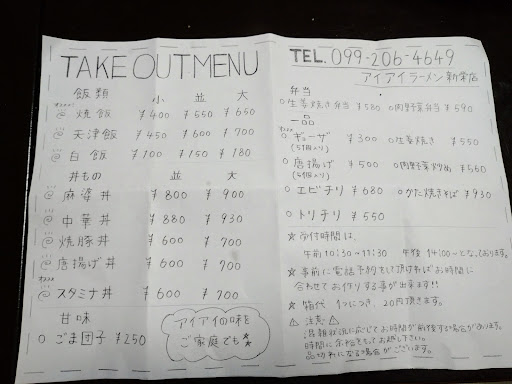 TAKE OUT MENU
飯類 小 並 大
焼飯 ¥400 ¥550 ¥650
天津飯 ¥450 ¥600 ¥700
白飯 ¥100 ¥150 ¥180
丼もの 並 大
麻婆丼 ¥800 ¥900
中華丼 ¥880 ¥930
焼豚丼 ¥600 ¥700
唐揚げ丼 ¥600 ¥700
スタミナ丼 ¥600 ¥700
甘味
ごま団子 ¥250
アイアイの味を
ご家庭でも
TEL. 099-206-4649
アイアイラーメン 新栄店
弁当
生姜焼き弁当 ¥580 肉野菜弁当 ¥590
一品
ギョーザ ¥300 生姜焼き ¥550
(5個入り)
唐揚げ ¥500 肉野菜炒め ¥560
(5個入り)
エビチリ ¥680 かた焼きそば ¥930
トリチリ ¥550
☆ 受付時間は、
午前10:30~11:30 午後14:00~となっております。
☆ 事前に電話予約をして頂ければお時間に
合わせてお作りする事が出来ます!!
☆ 箱代 1つにつき、20円頂きます。
⚠ 注意 ⚠
混雑状況に応じてお時間が前後する場合があります。
時間に余裕をもってお越し下さい。
品切れになる場合がございます。